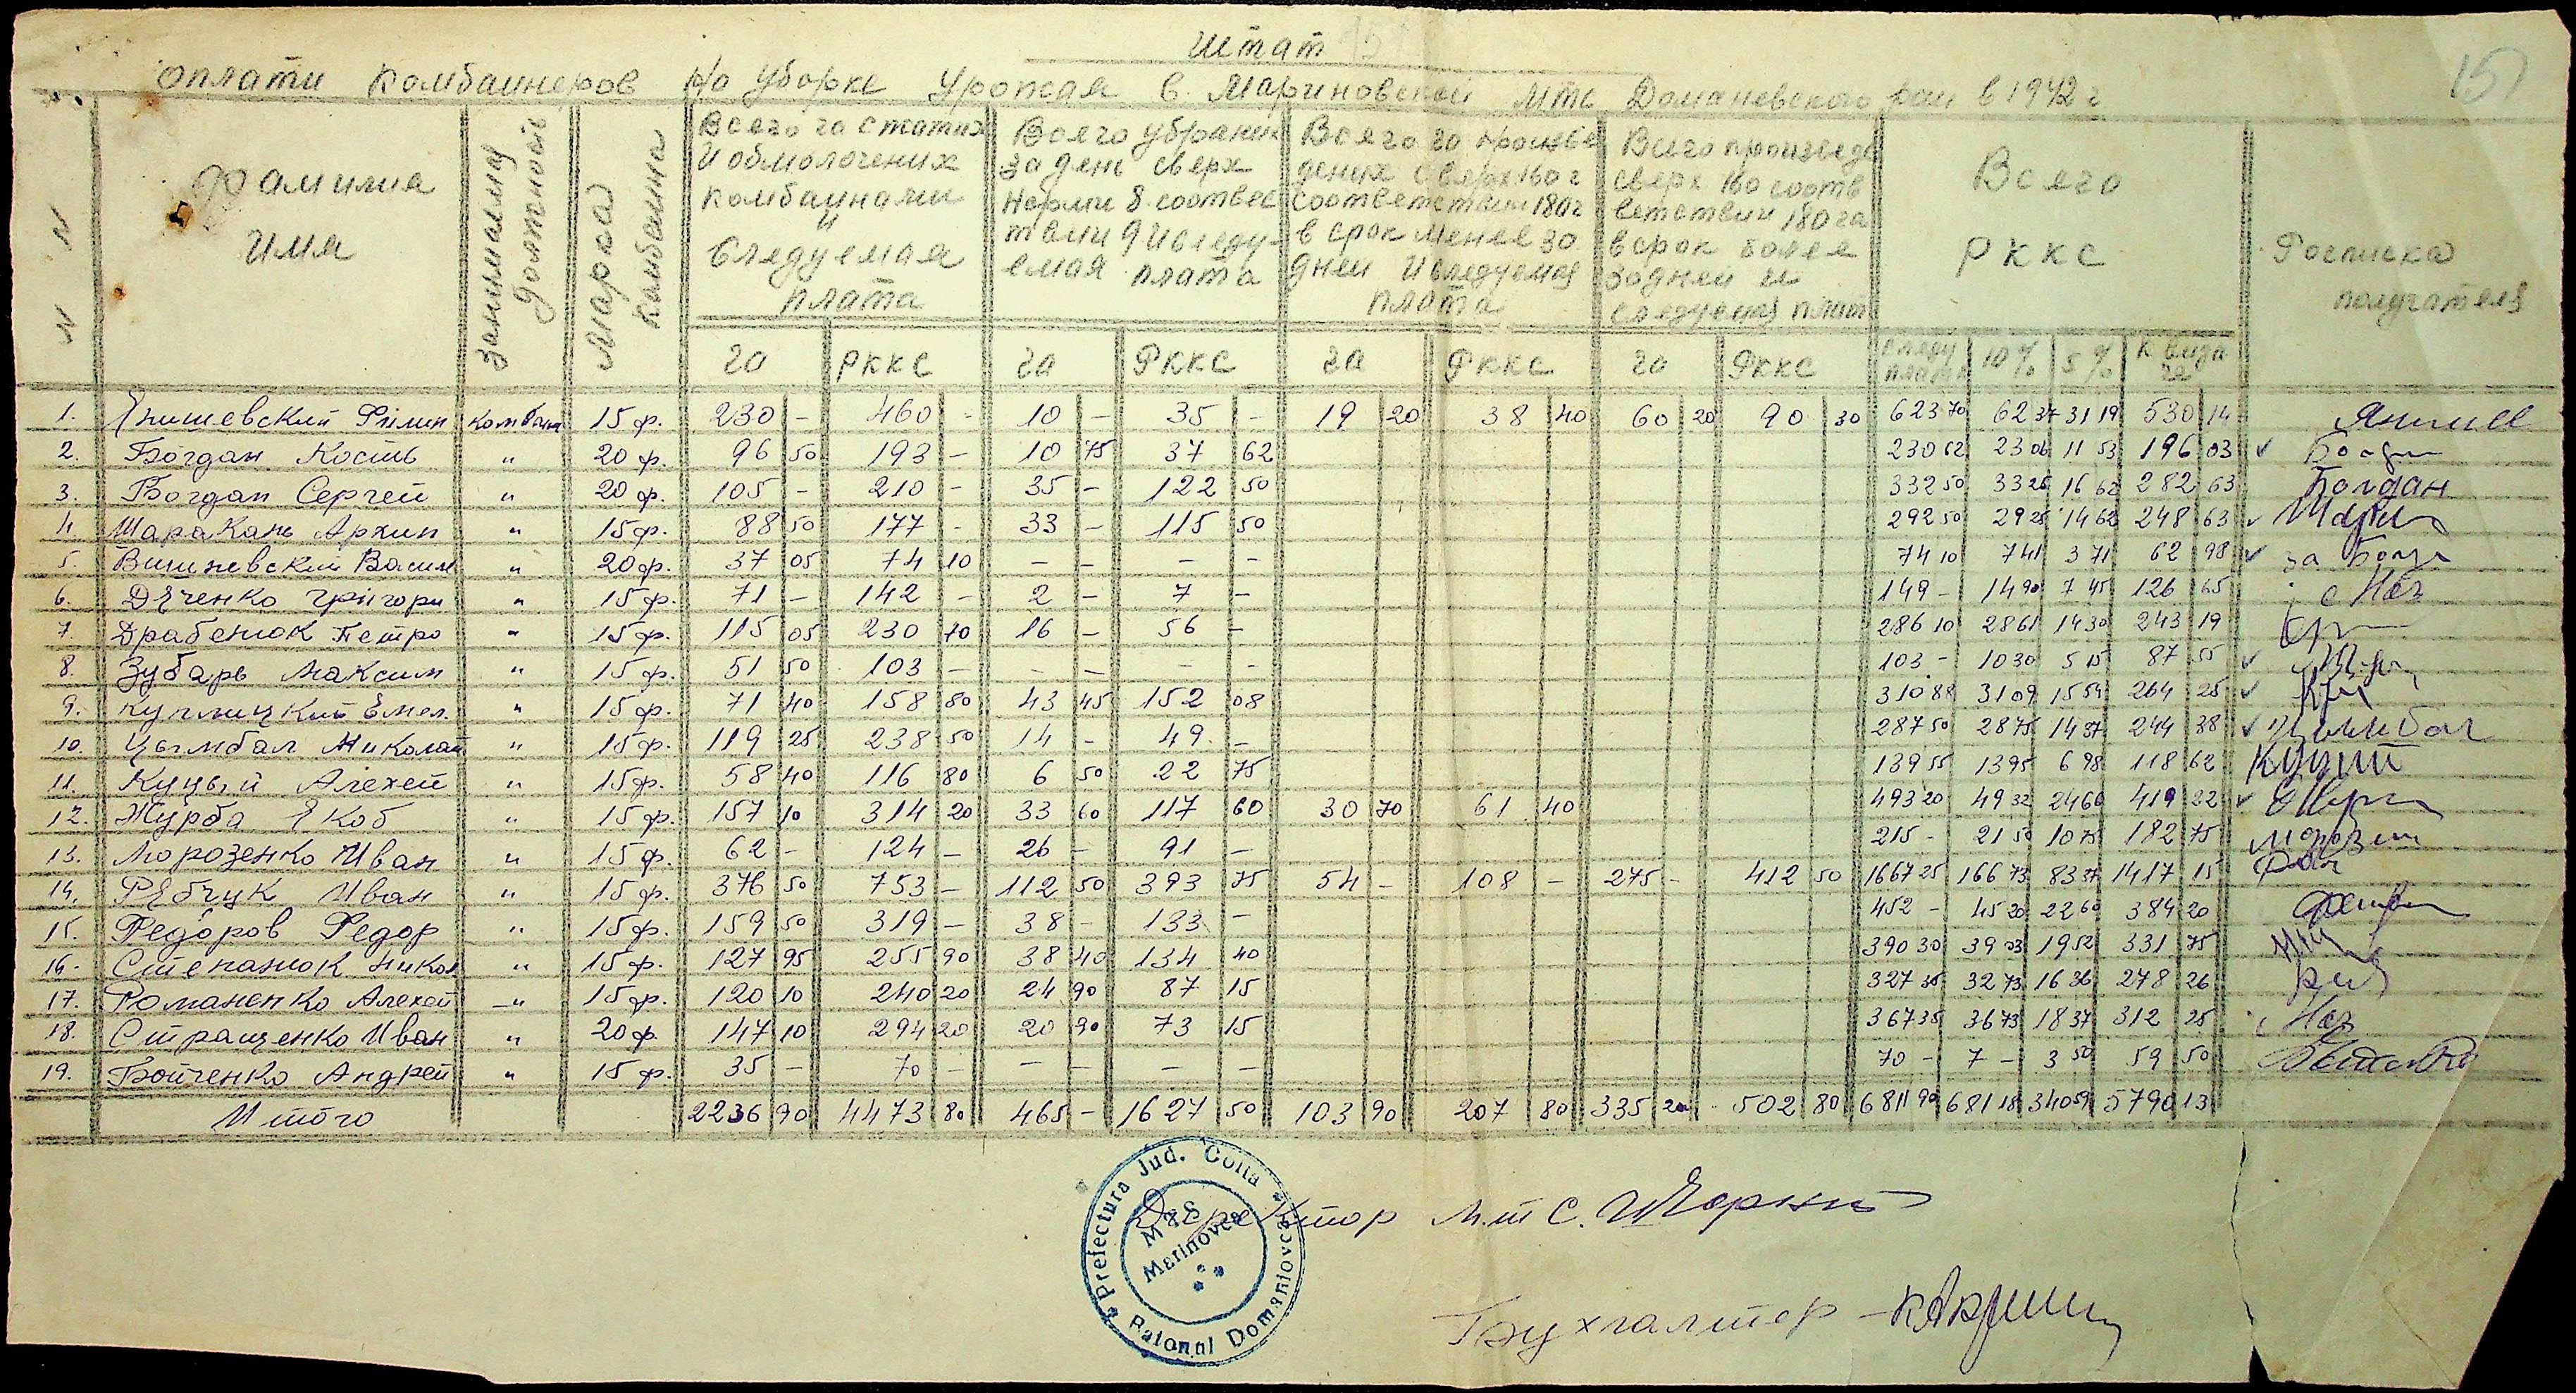 Штат
оплати комбаинеров по уборке урожая в Мариновской мтс Доманевского раи в 1942 г
15
N N
фамилия
имя
занимаемая
должность
Марка
комбаина
Всего га сжатих
и обмолочених
комбаинами
и
следуемая
плата
Всего убраних
за день сверх
Норми 8 соответ
твии 9 и следу-
емая плата
Всего га произве
дених сверх 160 г
соответствии 180 г
в срок менее 30
дней и следуемая
плата
Всего произведе
сверх 160 соотв
ветствии 180 га
в срок более
30 дней и
следуемая плат
Всего
РККС
Росписка
получателя
га РККС га РККС га РККС га РККС следу плата 10% 5% к выда че
1. Янишевский Филип комбаин 15 ф. 230 - 460 - 10 - 35 - 19 20 38 40 60 20 90 30 623 70 62 37 31 19 530 14 Янишев
2. Богдан Кость " 20 ф. 96 50 193 - 10 75 37 62 230 62 23 06 11 53 196 03
3. Богдан Сергей " 20 ф. 105 - 210 - 35 - 122 50 332 50 33 25 16 62 282 63 Богдан
4. Шаракань Архип " 15 ф. 88 50 177 - 33 - 115 50 292 50 29 25 14 62 248 63
5. Вишневский Васил " 20 ф. 37 05 74 10 - - - - 74 10 7 41 3 71 62 98 за
6. Дяченко Григори " 15 ф. 71 - 142 - 2 - 7 - 149 - 14 90 7 45 126 65
7. Драбенюк Петро " 15 ф. 115 05 230 10 16 - 56 - 286 10 28 61 14 30 243 19
8. Зубарь Максим " 15 ф. 51 50 103 - - - - - 103 - 10 30 5 15 87 55
9. Емел. " 15 ф. 71 40 158 80 43 45 152 08 310 88 31 09 15 54 264 25
10. Цымбал Миколай " 15 ф. 119 25 238 50 14 - 49 - 287 50 28 75 14 37 244 38 Цымбал
11. Куцый Алехей " 15 ф. 58 40 116 80 6 50 22 75 139 55 13 95 6 98 118 62 Куций
12. Журба Якоб " 15 ф. 157 10 314 20 33 60 117 60 30 70 61 40 493 20 49 32 24 66 419 22
13. Морозенко Иван " 15 ф. 62 - 124 - 26 - 91 - 215 - 21 50 10 75 182 75
14. Рябчук Иван " 15 ф. 376 50 753 - 112 50 393 75 54 - 108 - 275 - 412 50 1667 25 166 73 83 37 1417 15
15. Федоров Федор " 15 ф. 159 50 319 - 38 - 133 - 452 - 45 20 22 60 384 20
16. Степанюк Никол " 15 ф. 127 95 255 90 38 40 134 40 390 30 39 03 19 52 331 75
17. Романенко Алехей -" 15 ф. 120 10 240 20 24 90 87 15 327 35 32 73 16 36 278 26
18. Стращенко Иван " 20 ф. 147 10 294 20 20 90 73 15 367 35 36 73 18 37 312 25
19. Бойченко Андрей " 15 ф. 35 - 70 - - - - - 70 - 7 - 3 50 59 50
Итого 2236 90 4473 80 465 - 1627 50 103 90 207 80 335 20 502 80 6811 90 681 18 340 59 5790 13
Директор м.т С.
Prefectura Jud. Golta
Raional Domaniovca
MTS
Marinovca
Бухгалтер